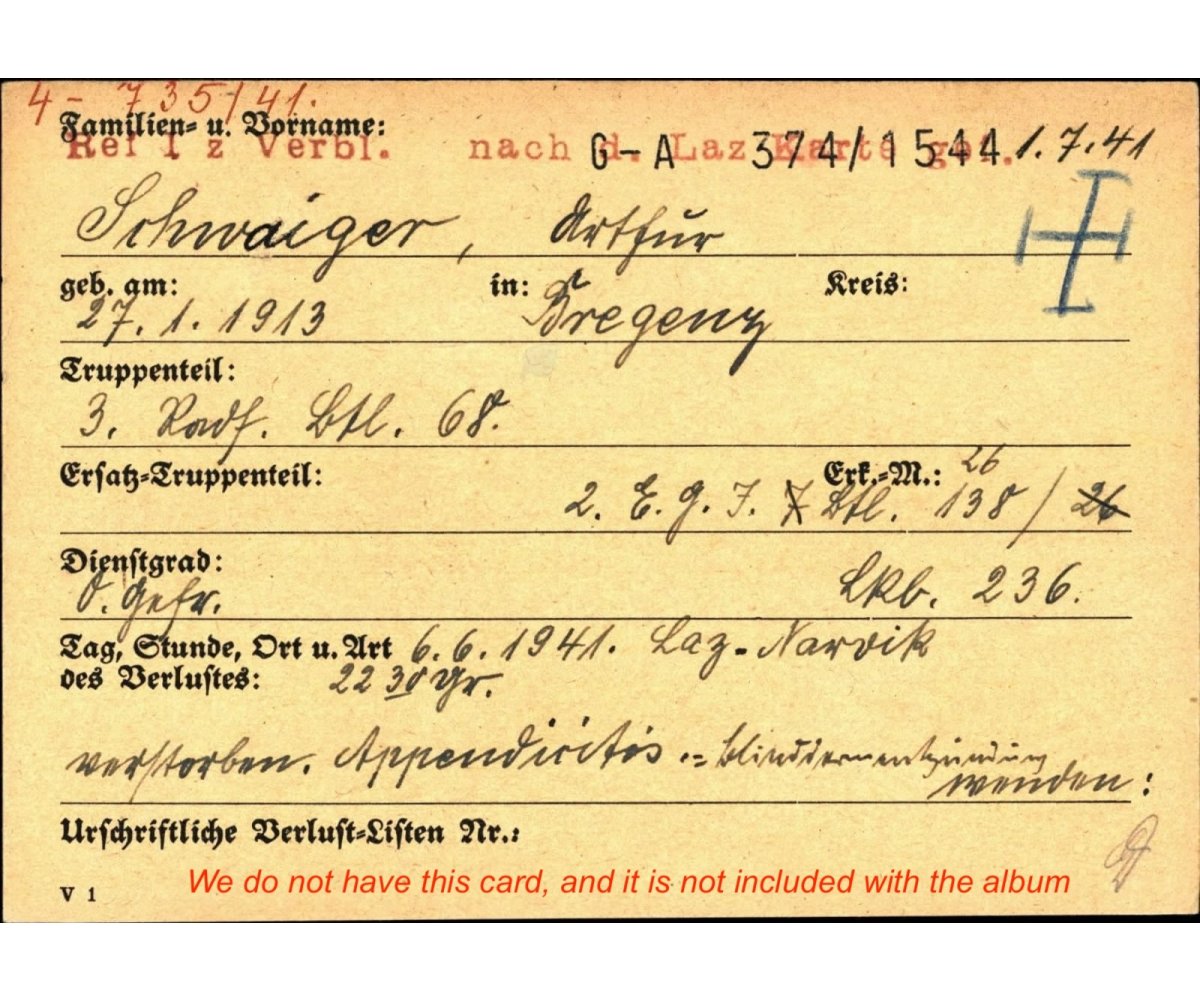 4 - 735/41.
Familien- u. Vorname:
Ref I z Verbl. nach d. Laz Karte gef.
G-A 374/1544 1.7.41
Schwaiger, Arthur
geb. am: in: Kreis:
27. 1. 1913 Bregenz
Truppenteil:
3. Radf. Btl. 68.
Ersatz-Truppenteil: Erk.-M.: 26
2. E. G. J. Btl. 138 / 26
Dienstgrad:
O. Gefr. Lkb. 236.
Tag, Stunde, Ort u. Art 6.6.1941. Laz-Narvik
des Verlustes: 22 30
verstorben. Appendicitis = Blinddarmentzündung
wenden:
Urschriftliche Verlust-Listen Nr.:
We do not have this card, and it is not included with the album
V 1